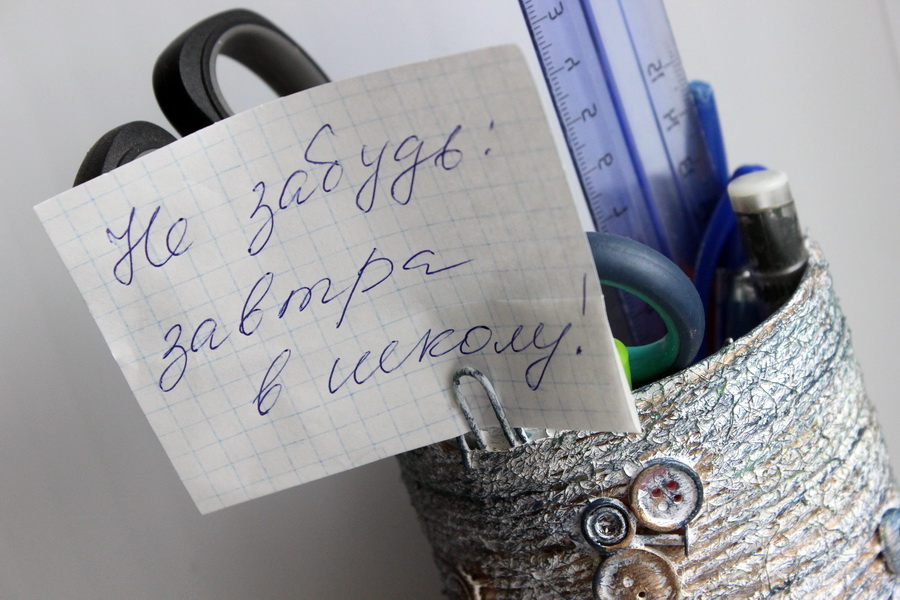 Не забудь:
завтра
в школу!
3
4
5
6
7
12
11